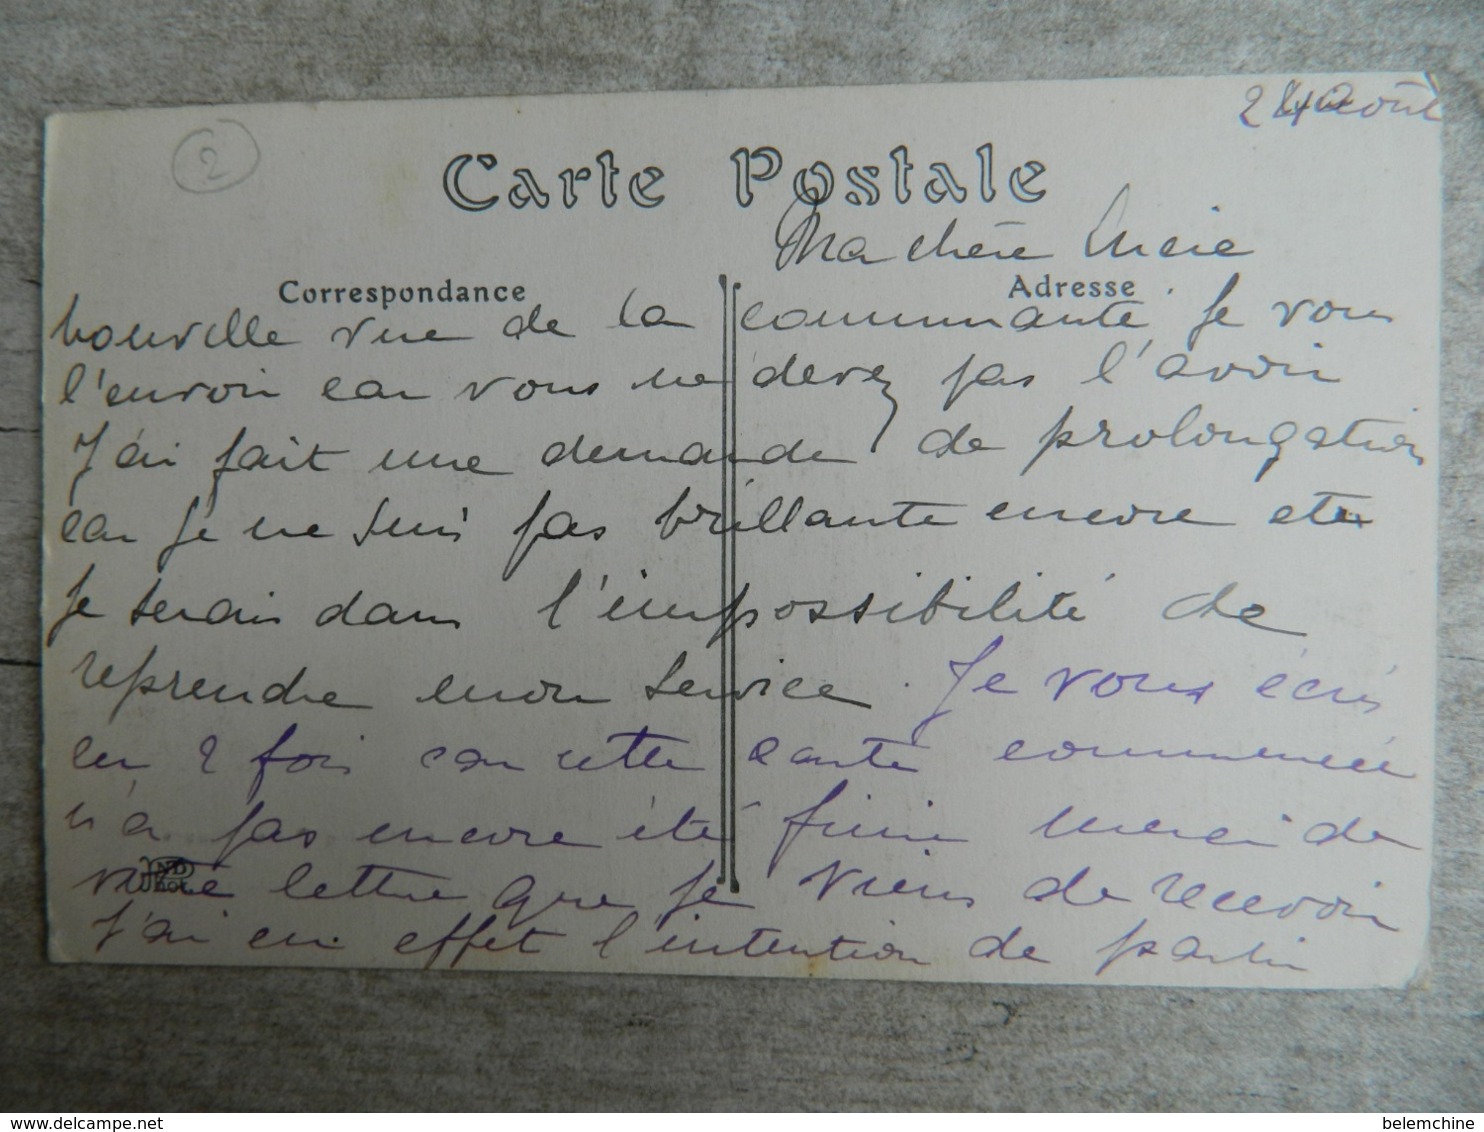 24 août
2
Carte Postale
Ma chère Lucie
Correspondance
Adresse
nouvelle vue de la communauté. Je vous
l'envoie car vous ne devez pas l'avoir
J'ai fait une demande de prolongation
car je ne suis pas brillante encore et
je serais dans l'impossibilité de
reprendre mon service. Je vous écris
en 2 fois car cette carte commencée
n'a pas encore été finie merci de
votre lettre que je viens de recevoir
J'ai eu en effet l'intention de partir
belemchine